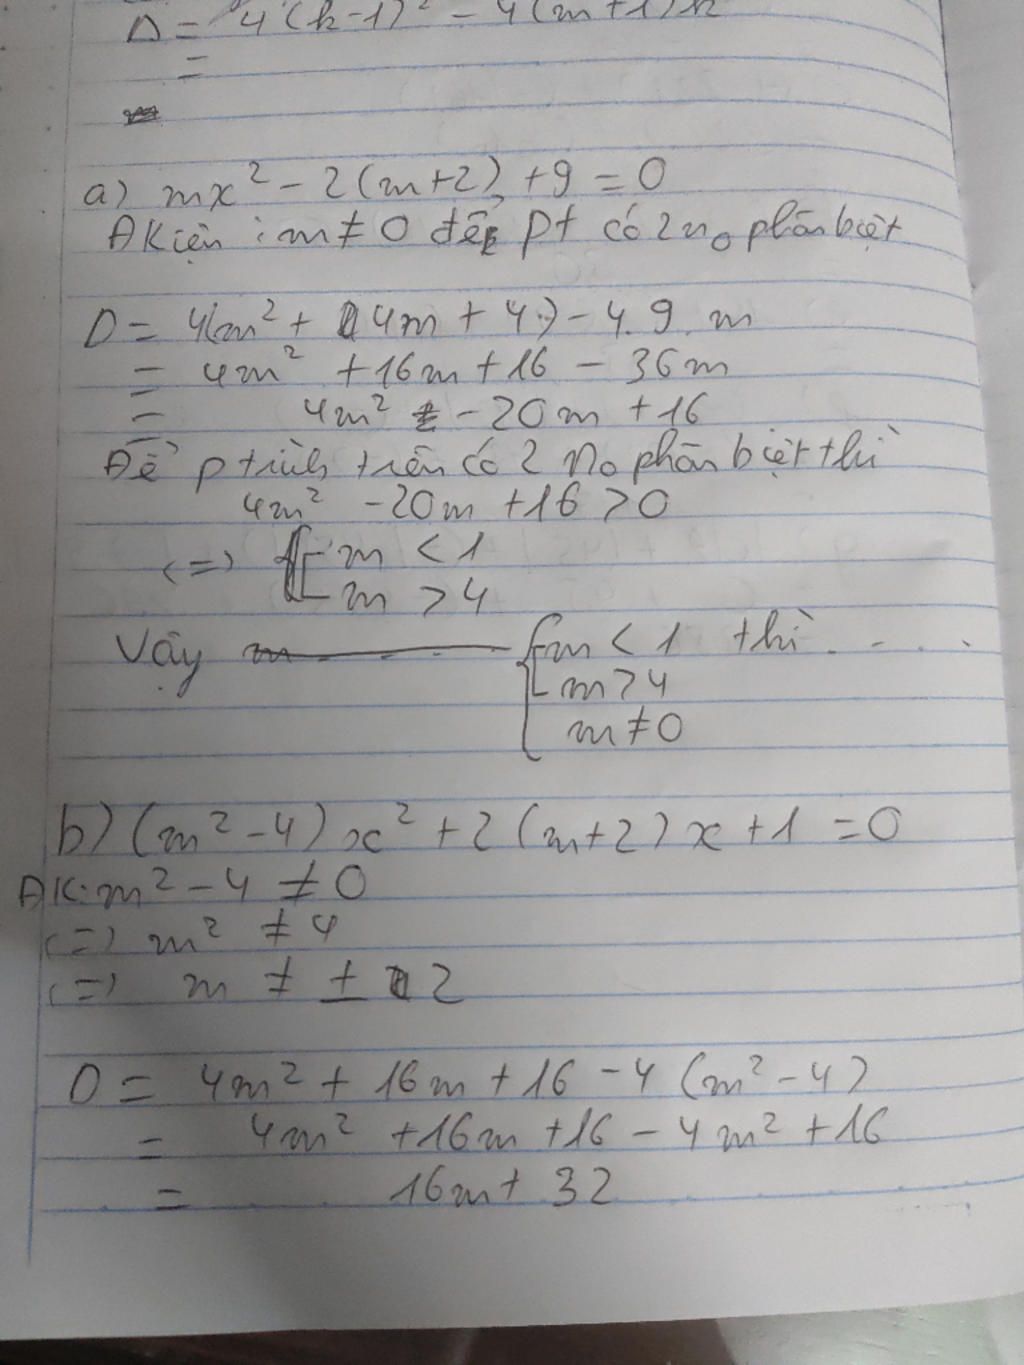 Δ = 4(k-1)² - 4(m+1)k
=
a) mx² - 2(m+2), +9 = 0
ĐKiện : m ≠ 0 để pt có 2 no phân biệt
Δ = 4(m² + 4m + 4) - 4. 9. m
= 4m² + 16m + 16 - 36m
= 4m² - 20m + 16
Để ptrình trên có 2 no phân biệt thì
4m² - 20m + 16 > 0
(=) [ m < 1
m > 4
Vậy { [ m < 1 thì . - . .
m > 4
m ≠ 0
b) (m² - 4) x² + 2 (m+2) x + 1 = 0
ĐK: m² - 4 ≠ 0
(=) m² ≠ 4
(=) m ≠ ± 2
Δ = 4m² + 16m + 16 - 4 (m² - 4)
= 4m² + 16m + 16 - 4m² + 16
= 16m + 32